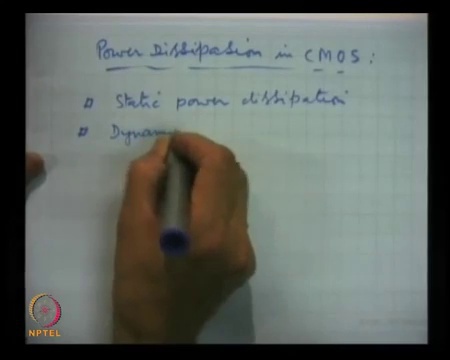 Power Dissipation in CMOS :
Static power dissipation
Dynam
NPTEL